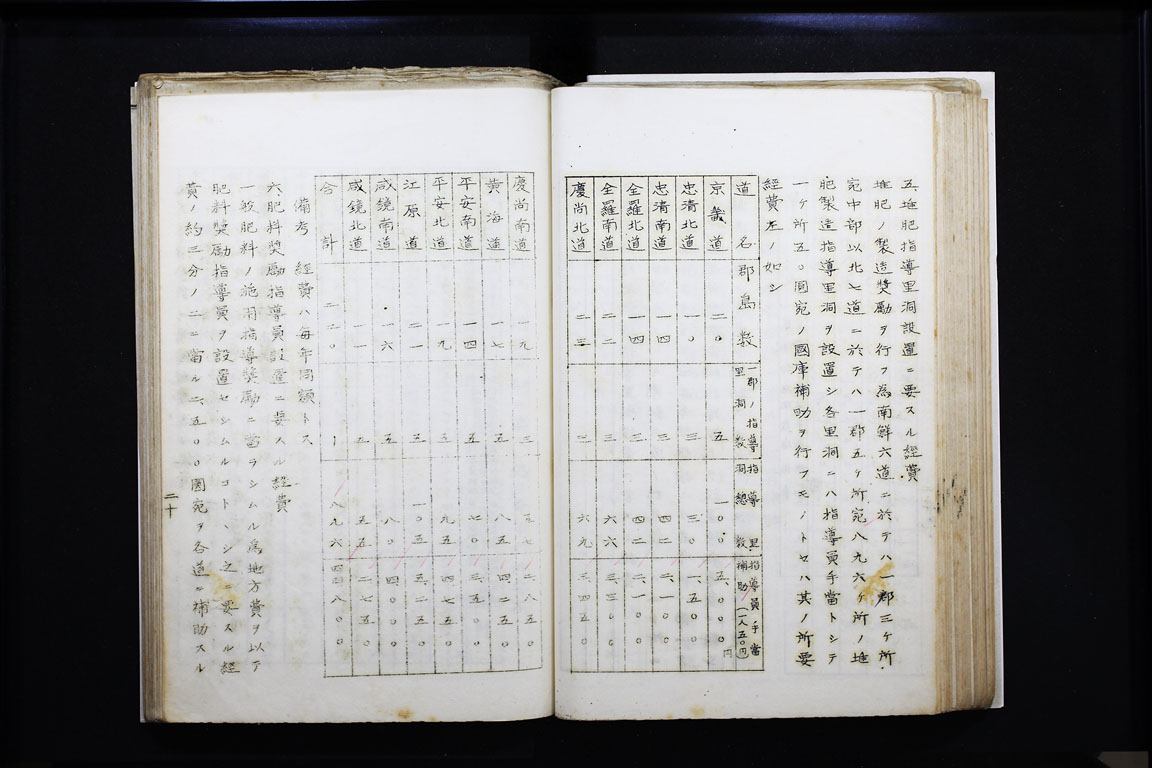 五、堆肥指導里洞設置ニ要スル経費
堆肥ノ製造奨励ヲ行フ為南鮮六道ニ於テハ一郡三ケ所
宛中部以北七道ニ於テハ一郡五ケ所宛八九六ケ所ノ堆
肥製造指導里洞ヲ設置シ各里洞ニハ指導員手當トシテ
一ケ所五〇圓宛ノ國庫補助ヲ行フモノトセハ其ノ所要
経費左ノ如シ
道名 郡島数 一郡ノ指導里洞数 指導里洞総数 指導員手當補助(一人五〇円)
京畿道 二〇 五 一〇〇 五、〇〇〇円
忠清北道 一〇 三 三〇 一、五〇〇
忠清南道 一四 三 四二 二、一〇〇
全羅北道 一四 三 四二 二、一〇〇
全羅南道 二二 三 六六 三、三〇〇
慶尚北道 二三 三 六九 三、四五〇
慶尚南道 一九 三 五七 二、八五〇
黄海道 一七 五 八五 四、二五〇
平安南道 一四 五 七〇 三、五〇〇
平安北道 一九 五 九五 四、七五〇
江原道 二一 五 一〇五 五、二五〇
咸鏡南道 一六 五 八〇 四、〇〇〇
咸鏡北道 一一 五 五五 二、七五〇
合計 二二〇 ー 八九六 四四、八〇〇
備考 経費ハ毎年同額トス
六、肥料奨励指導員設置ニ要スル経費
一般肥料ノ施用指導奨励ニ當ラシムル為地方費ヲ以テ
肥料奨励指導員ヲ設置セシムルコトヽシ之ニ要スル経
費ノ約三分ノ二ニ當ル二、五〇〇圓宛ヲ各道ニ補助スル
二十